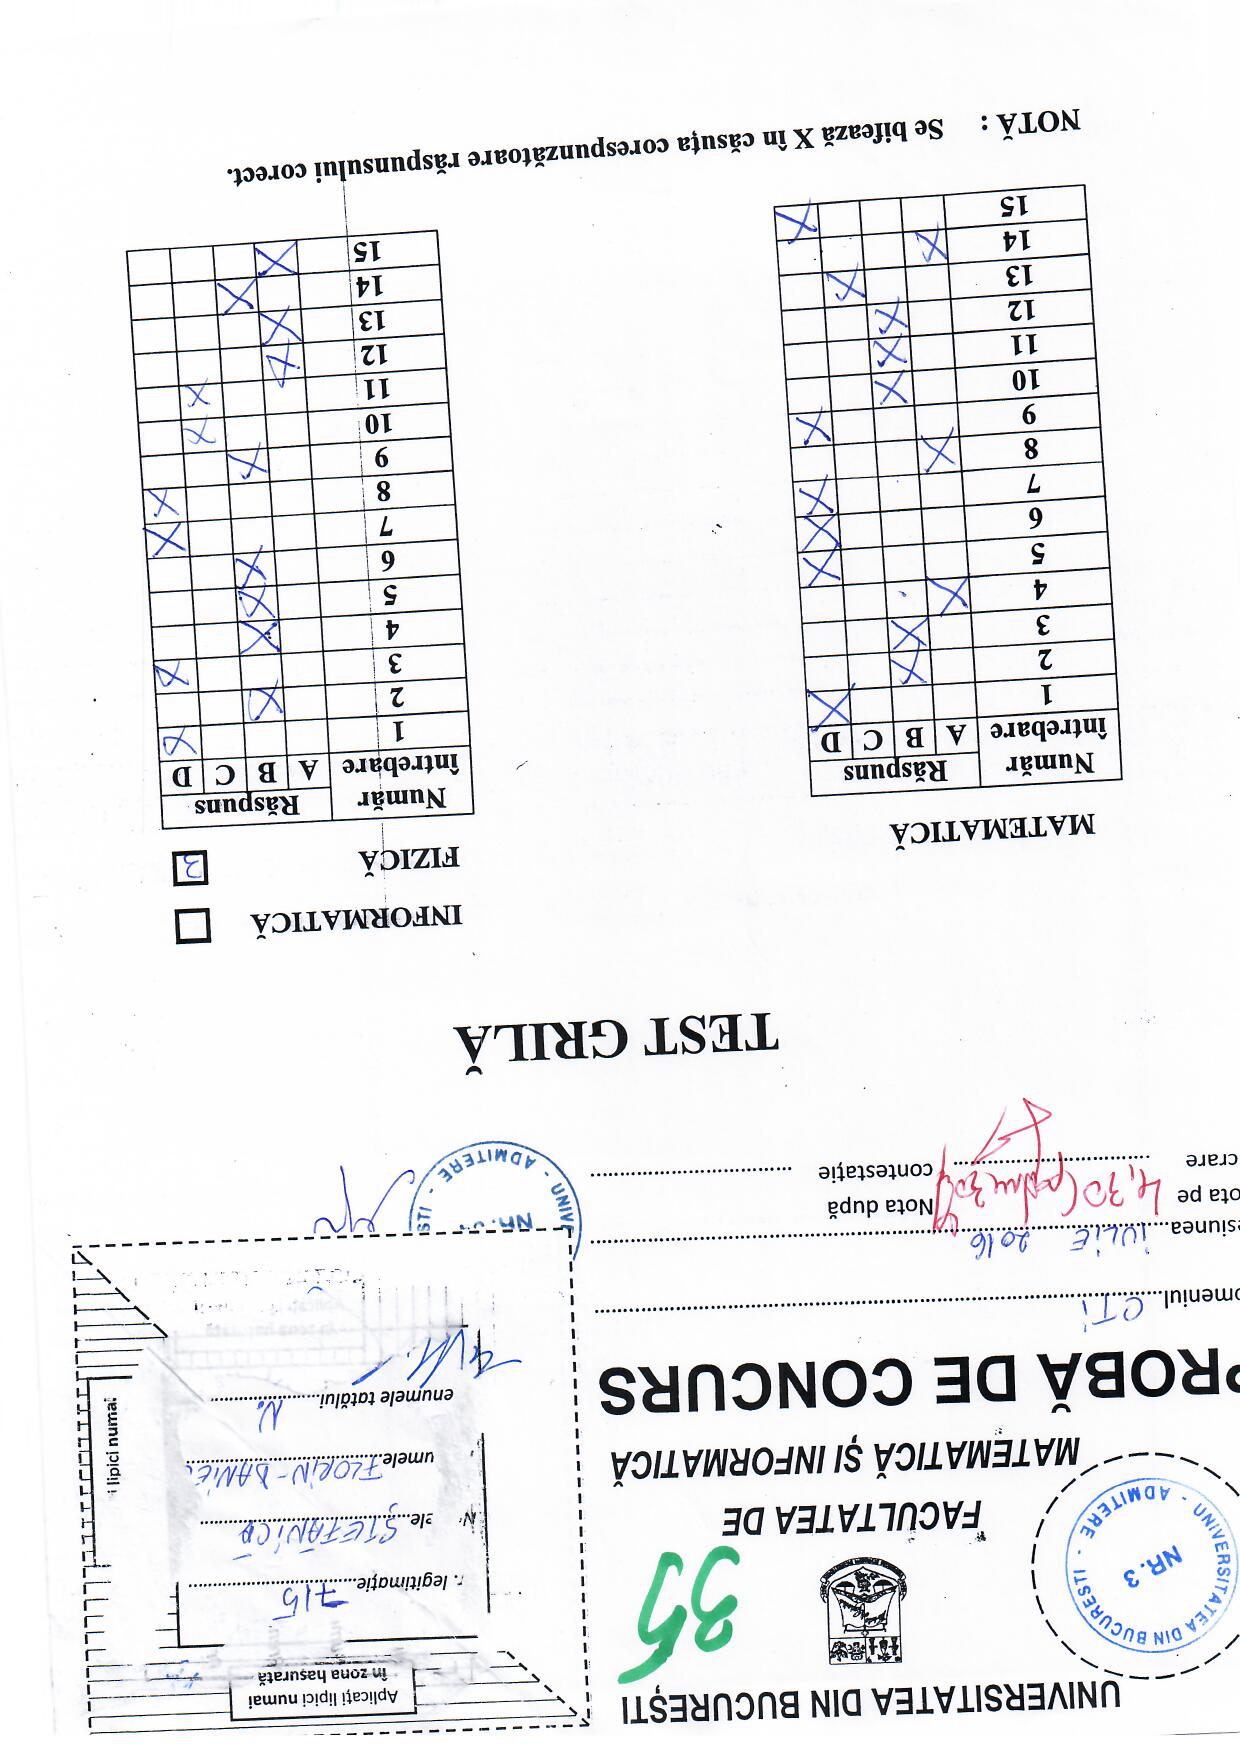 UNIVERSITATEA DIN BUCUREȘTI
FACULTATEA DE
MATEMATICĂ ȘI INFORMATICĂ
35
UNIVERSITATEA DIN BUCURESTI - ADMITERE -
NR. 3
PROBĂ DE CONCURS
omeniul CTi
esiunea iULiE 2016
ota pe
crare
4,30 (patru 30%)
Nota după
contestație
Aplicați lipici numai
în zona hașurată
r. legitimație 715
ele ȘTEFĂNICĂ
umele FLORiN-DANiEL
enumele tatălui N.
i lipici numai
ADMITERE
TEST GRILĂ
INFORMATICĂ
FIZICĂ 3
MATEMATICĂ
Număr întrebare Răspuns
A B C D
1 X
2 X
3 X
4 X
5 X
6 X
7 X
8 X
9 X
10 X
11 X
12 X
13 X
14 X
15 X
Număr întrebare Răspuns
A B C D
1 X
2 X
3 X
4 X
5 X
6 X
7 X
8 X
9 X
10 X
11 X
12 X
13 X
14 X
15 X
NOTĂ : Se bifează X în căsuța corespunzătoare răspunsului corect.